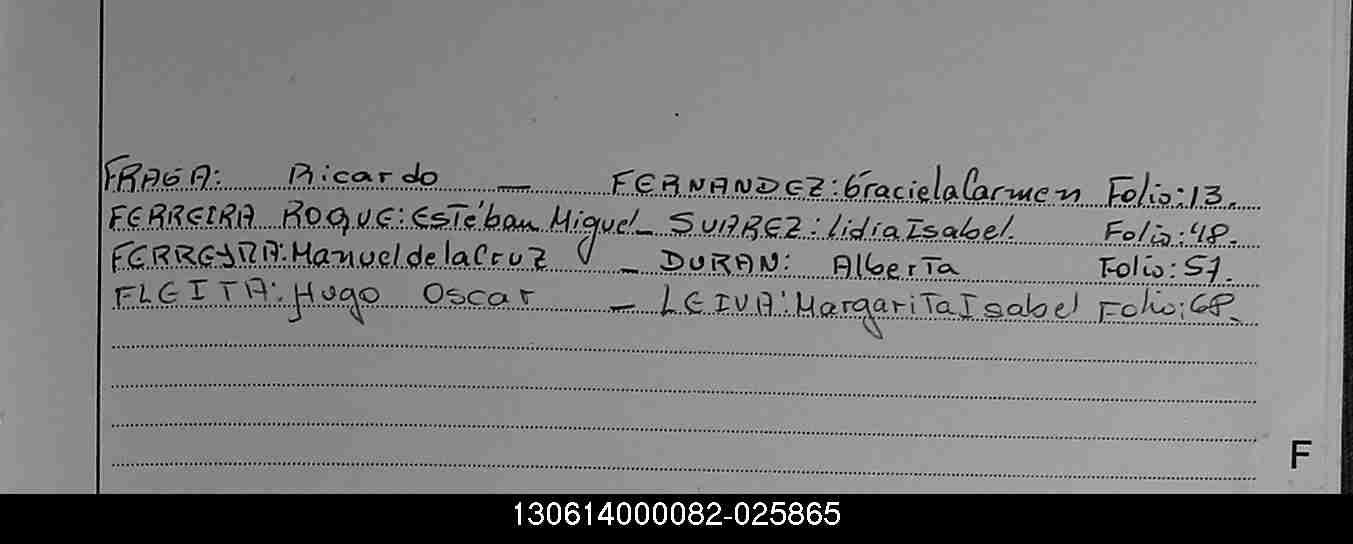 FRAGA: Ricardo — FERNANDEZ: Graciela Carmen Folio: 13.
FERREIRA ROQUE: Estéban Miguel — SUAREZ: Lidia Isabel. Folio: 48.
FERREYRA: Manuel de la Cruz — DURAN: Alberta Folio: 57.
FLEITA: Hugo Oscar — LEIVA: Margarita Isabel Folio: 68.
F
130614000082-025865